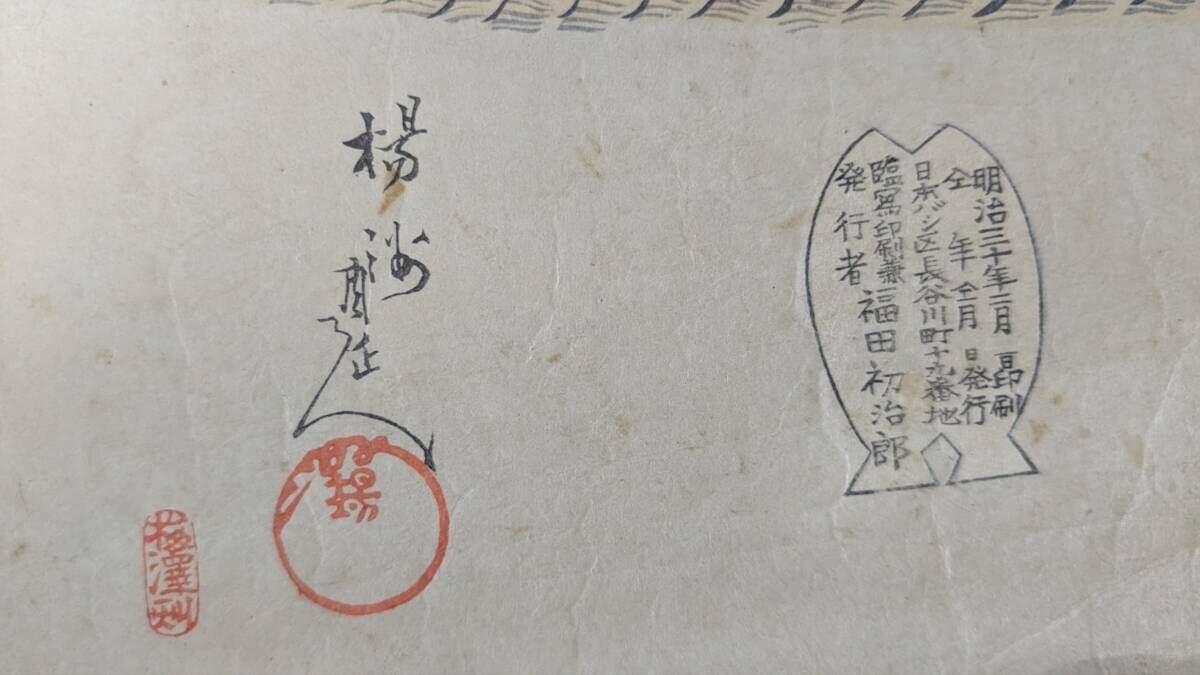 明治三十年二月 日印刷
仝年仝月 日発行
日本バシ区長谷川町十九番地
臨写印刷兼
発行者 福田初治郎
楊洲周延
梅澤刻